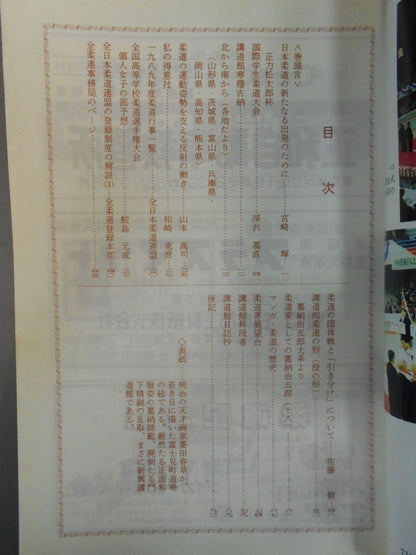 目次
〈巻頭言〉
日本柔道の新たなる出発のために 宮崎 輝 一
正力松太郎杯
国際学生柔道大会 深沢 嘉直 四
講道館寒稽古納
北から南から(各地だより)
山形県・茨城県・富山県・兵庫県・
岡山県・高知県・熊本県
柔道の運動姿勢を支える反射の働き 山本 高司
私の得意技 柏崎 克彦
一九八九年度柔道行事一覧 全日本柔道連盟
全国高等学校柔道選手権大会
個人女子の部予想 鮫島 元成
全日本柔道連盟の登録制度の解説(3) 全柔連登録本部
全柔連事務局のページ
柔道の団体戦と「引き分け」について 佐藤 毅
講道館柔道の形(投の形)
嘉納治五郎大系より
柔道家としての嘉納治五郎(十八)
マンガ・柔道の歴史
柔道界展望台
講道館昇段者
講道館日誌抄
後記
◇表紙◇
明治の天才画家菱田春草が、
若き日に描いた富士見町道場
の絵である。厳然たる正面和
服姿の嘉納師範。溌剌たる門
下精鋭の乱取。まさに新興講
道館である。